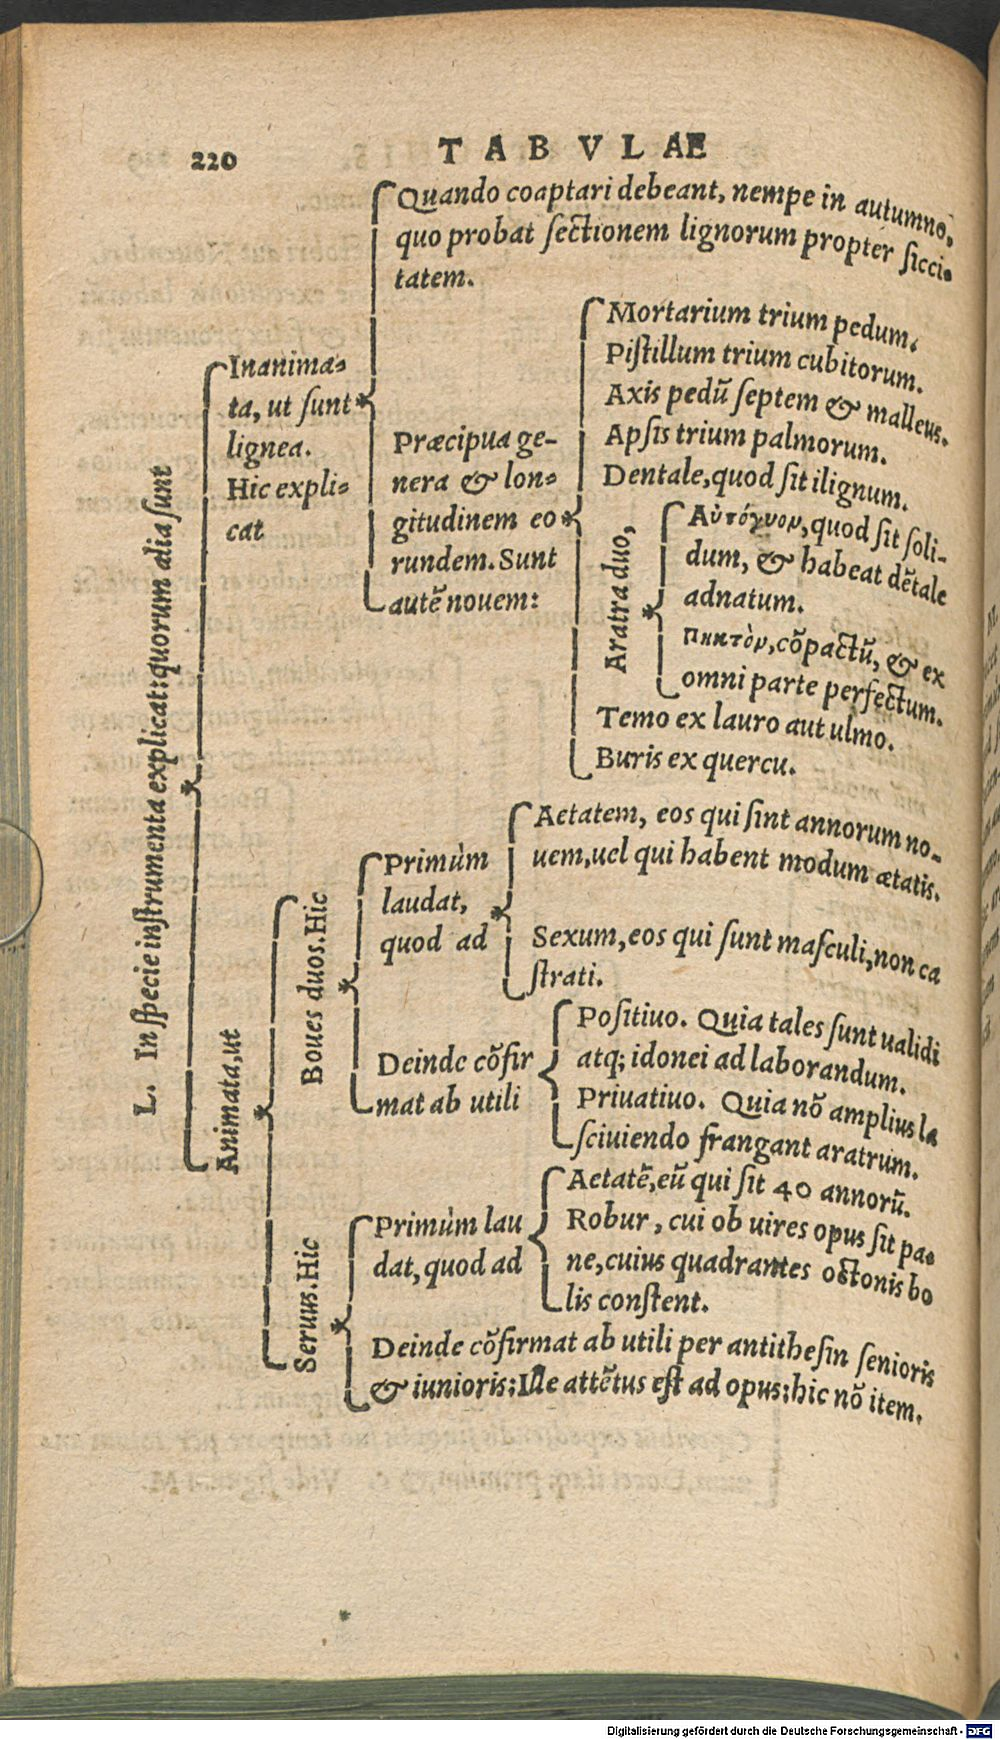 220
TABVLAE
L. In specie instrumenta explicat: quorum alia sunt
Inanima-
ta, ut sunt
lignea.
Hic expli-
cat
Quando coaptari debeant, nempe in autumno,
quo probat sectionem lignorum propter sicci-
tatem.
Præcipua ge-
nera & lon-
gitudinem eo
rundem. Sunt
autē nouem:
Mortarium trium pedum.
Pistillum trium cubitorum.
Axis pedū septem & malleus.
Apsis trium palmorum.
Dentale, quod sit ilignum.
Aratra duo,
Αὐτόγυον, quod sit soli-
dum, & habeat dētale
adnatum.
πηκτὸν, cōpactū, & ex
omni parte perfectum.
Temo ex lauro aut ulmo.
Buris ex quercu.
Animata, ut
Boues duos. Hic
Primùm
laudat,
quod ad
Aetatem, eos qui sint annorum no-
uem, uel qui habent modum ætatis.
Sexum, eos qui sunt masculi, non ca
strati.
Deinde cōfir
mat ab utili
Positiuo. Quia tales sunt ualidi
atq; idonei ad laborandum.
Priuatiuo. Quia nō amplius la
sciuiendo frangant aratrum.
Seruus. Hic
Primùm lau
dat, quod ad
Aetatē, eū qui sit 40 annorū.
Robur, cui ob uires opus sit pa-
ne, cuius quadrantes octonis bo
lis constent.
Deinde cōfirmat ab utili per antithesin senioris
& iunioris: Ille attētus est ad opus; hic nō item.
Digitalisierung gefördert durch die Deutsche Forschungsgemeinschaft - DFG